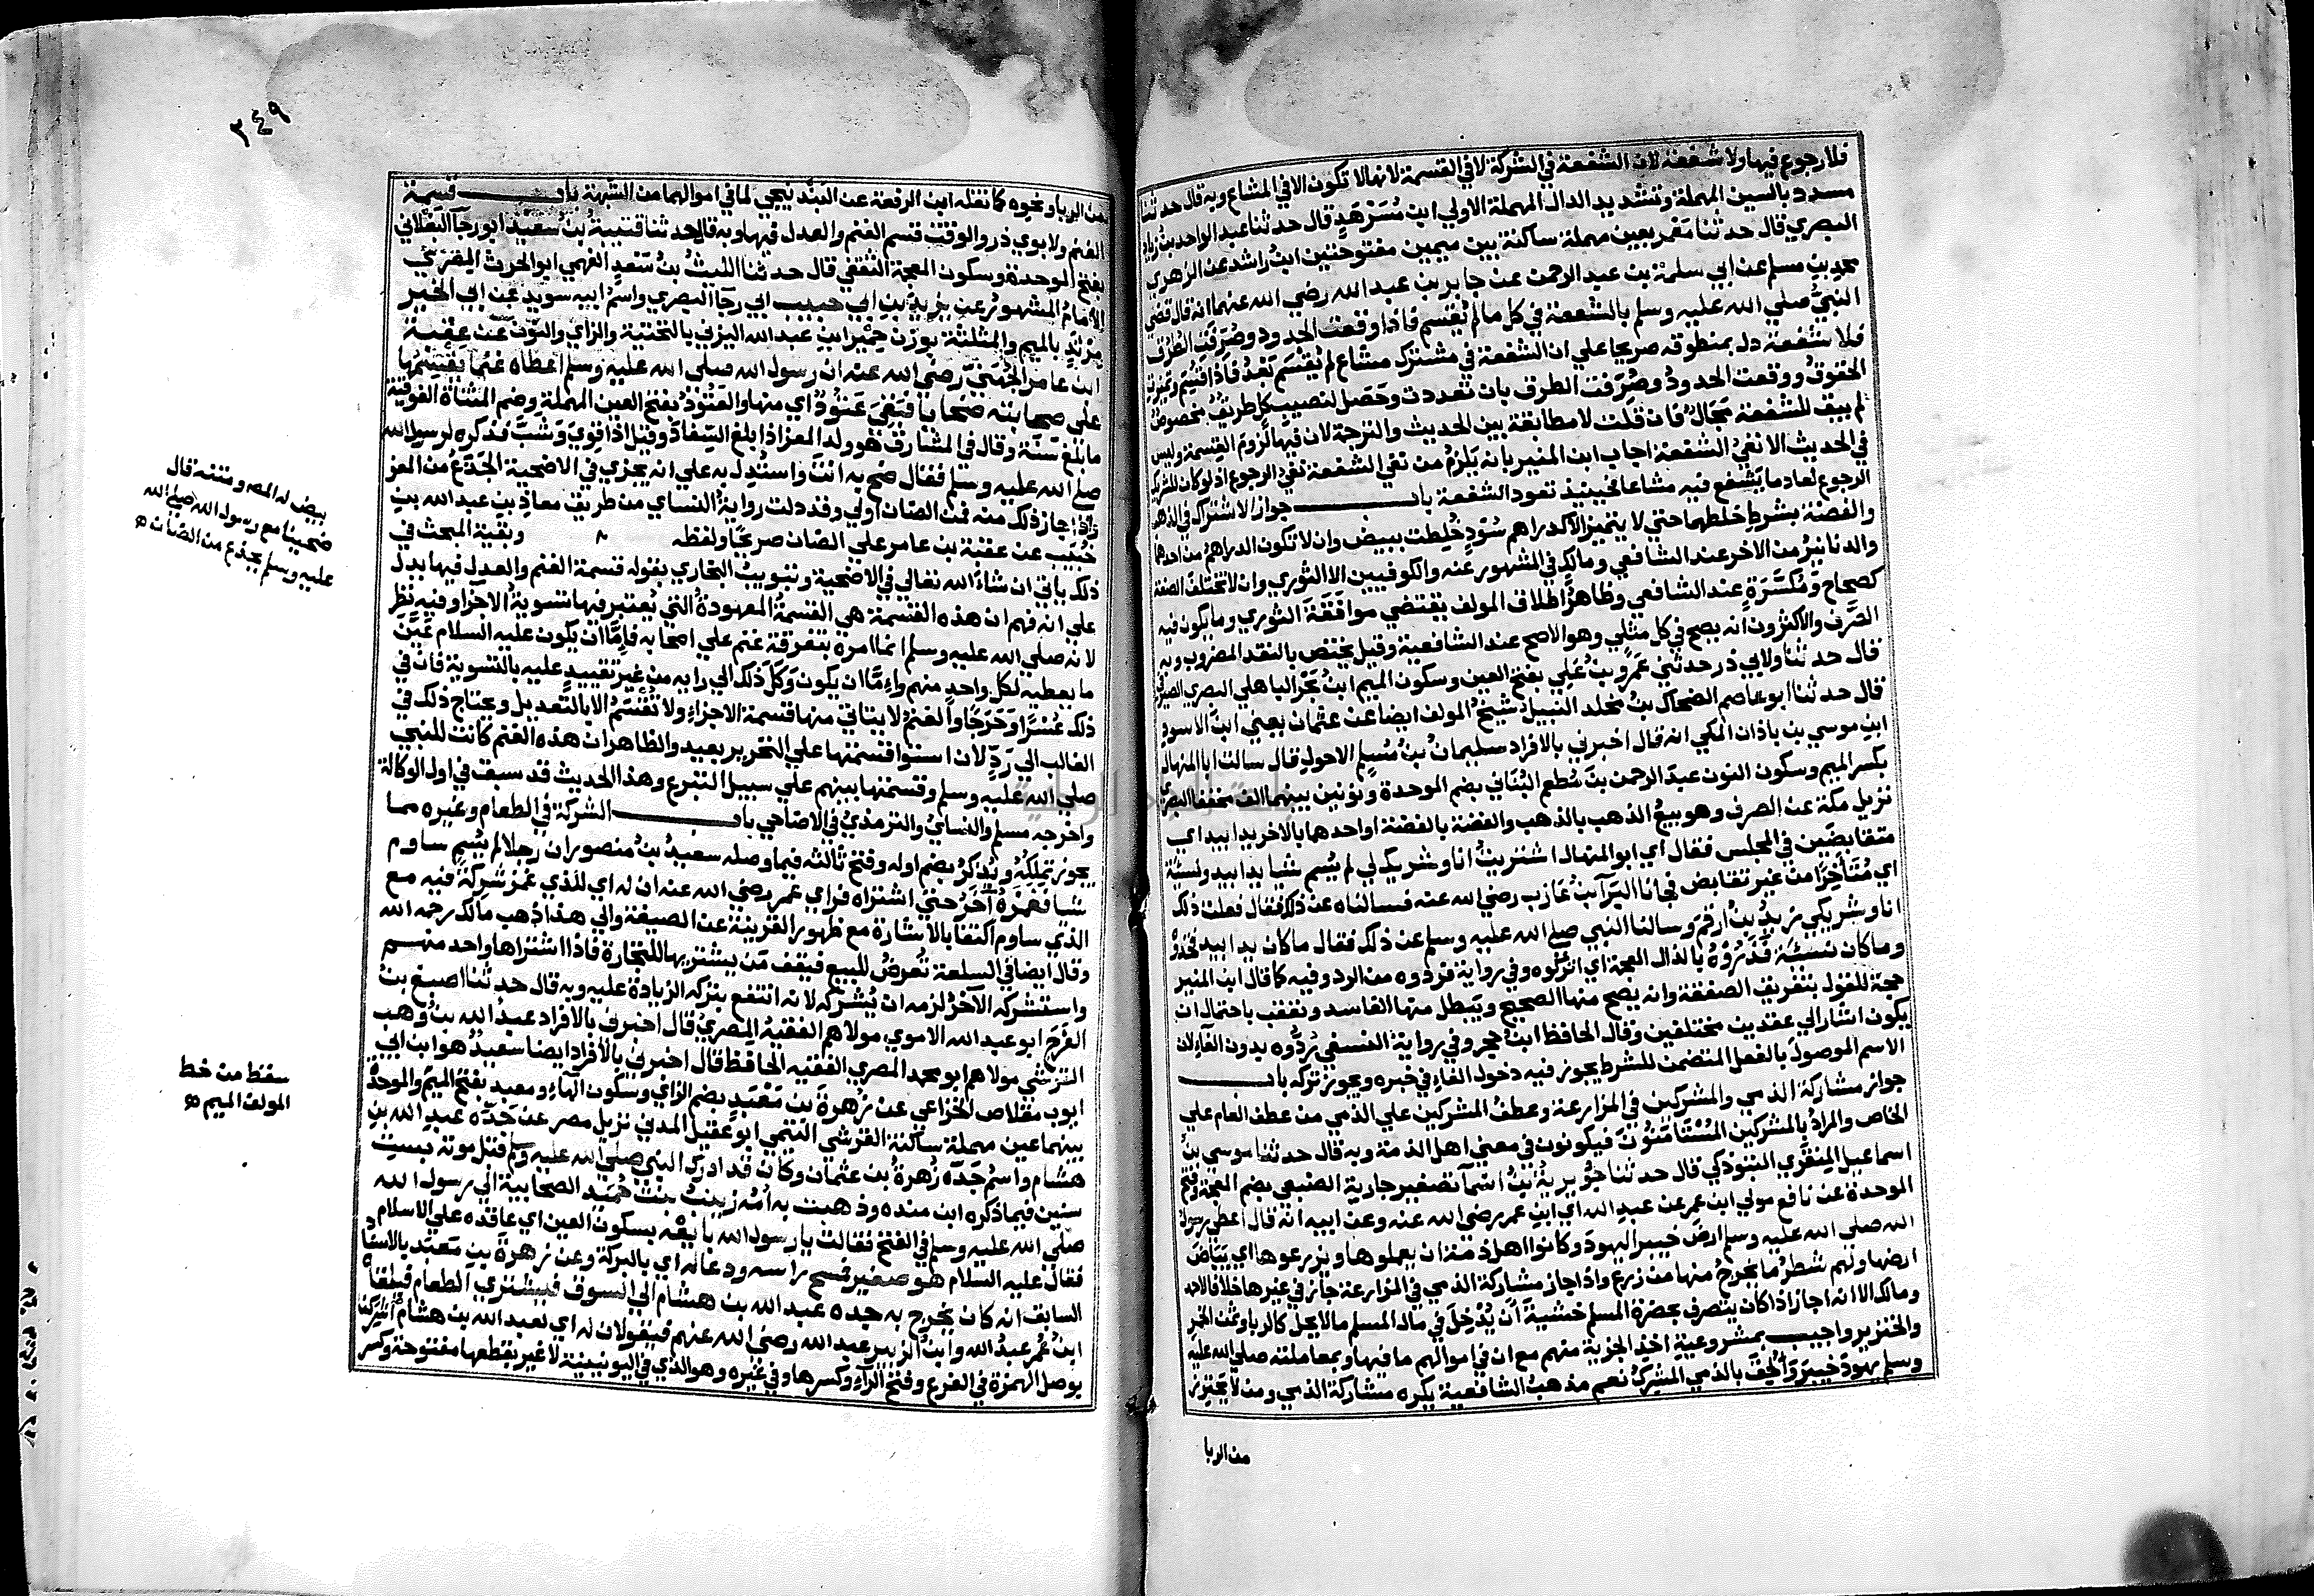 فلا رجوع فيها ولا شفعة لان الشفعة في الشركة لا في القسمة لانها لا تكون الا في المشاع وبه قال حدثنا
مسدد بالسين المهملة وتشديد الدال المهملة الاولي ابن مُسَرْهَدٍ قال حدثنا عبد الواحد بن زياد
البصري قال حدثنا مَعْمر بعين مهملة ساكنة بين ميمين مفتوحتين ابن راشد عن الزهري
محمد بن مسلم عن ابي سلمة بن عبد الرحمن عن جابر بن عبد الله رضي الله عنهما انه قال قضي
النبيُّ صلي الله عليه وسلم بالشفعة في كل ما لم يُقْسم فاذا وقعت الحدود وصُرِفَتِ الطُرُق
فلا شفعة دل بمنطوقه صريحا علي ان الشفعة في مشترك مشاع لم يُقْسَم بَعْدُ فاذا قُسِمَ وتميزت
الحقوقُ ووقعت الحدودُ وصُرِفت الطرق بان تعددت وحَصَل لنصيبِ كلٍ طريقٌ مخصوصٌ
لم يبق للشفعة مجالٌ فان قلت لا مطابقة بين الحديث والترجمة لان فيها لزومَ القسمة وليس
في الحديث الا نفيُ الشفعة اجاب ابن المنير بانه يَلزمُ من نفي الشفعة نفيُ الرجوع اذ لو كان للشريك
الرجوع لعاد ما يَشفع فيه مشاعا فحينيذ تعود الشفعة باب جواز الاشتراك في الذهب
والفضة بشرط خلطهما حتي لا يتميز الاكدراهم سُودٍ خُلِطت ببيض وان لا تكون الدراهمُ من احدهما
والدنانيرُ من الاخر عند الشافعي ومالك في المشهور عنه والكوفيين الا الثوري وان لا تختلف الصفة
كصحاح ومُكسَّرة عند الشافعي وظاهرُ اطلاق المولف يقتضي موافَقَةَ الثوري وما يكون فيه
الصَّرف والاكثرون انه يصح في كل مثلي وهو الاصح عند الشافعية وقيل يختص بالنقد المضروب وبه
قال حدثنا ولابي ذر حدثني عَمرو بنُ عَلي بفتح العين وسكون الميم ابنُ بحر الباهلي البصري الصيرفي
قال حدثنا ابو عاصم الضحاك بنُ مخلد النبيلُ شيخُ المولف ايضا عن عثمان يعني ابنَ الاسود
ابنِ موسي بن باذان المكي انه قال اخبرني بالافراد سليمانُ بنُ مُسلمٍ الاحول قال سالت ابا المنهال
بكسر الميم وسكون النون عبدَ الرحمن بنَ مُطعم البُنَاني بضم الموحدة ونونين بينهما الف مخففا البصري
نزيل مكة عن الصرف وهو بيعُ الذهب بالذهب والفضة بالفضة او احدهما بالاخر يدا بيد اي
متقابضَين في المجلس فقال اي ابو المنهال اشتريتُ انا وشريك لي لم يُسم شيا يدا بيد ونسيئة
اي مُتَأخِرًا من غير تقابض فجانا البَرآءُ بنُ عازب رضي الله عنه فسالناه عن ذلك فقال فعلت ذلك
انا وشريكي زيدُ بنُ ارقمَ وسالنا النبي صلي الله عليه وسلم عن ذلك فقال ما كان يدا بيد فخذوه
وما كان نسيئة فذروه بالذال المعجمة اي اتركوه وفي رواية فردوه من الرد وفيه كما قال ابن المنير
حجة للقول بتفريق الصفقة وانه يصح منها الصحيح ويبطل منها الفاسد وتعقب باحتمال ان
يكون اشار الي عقدين مختلفين وقال الحافظ ابنُ حجر وفي رواية النسفي رُدُّوه بدون الفاءِ لان
الاسم الموصولَ بالفعل المتضمن للشرط يجوز فيه دخول الفاءِ في خبره ويجوز تركه باب
جواز مشاركة الذمي والمشركين في المزارعة وعطفُ المشركين علي الذمي من عطف العام علي
الخاص والمرادُ بالمشركين المُسْتَأمَنُون فيكونون في معني اهل الذمة وبه قال حدثنا موسي بنُ
اسماعيل المِنقَري التبوذكي قال حدثنا جُوَيرية بنُ اسْمآ تصغير جارية الضبعي بضم المعجمة وفتح
الموحدة عن نافع مولي ابن عمر عن عبدِ الله اي ابنِ عمر رضي الله عنه وعن ابيه انه قال اعطي رسولُ
الله صلي الله عليه وسلم ارضَ خيبر اليهودَ وكانوا اهل ذمة ان يعملوها ويزرعوها اي بَيَاضَ
ارضها ولهم شطرُ ما يخرجُ منها من زرع واذا جاز مشاركة الذمي في المزارعة جاز في غيرها خلافا لاحمد
ومالك الا انه اجاز اذا كان يتصرف بحضرة المسلم خشيةَ أن يُدْخِلَ في مال المسلم ما لا يحل كالربا وثمن الخمر
والخنزير واجيب بمشروعية اخذ الجزية منهم مع ان في اموالهم ما فيها وبمعاملته صلي الله عليه
وسلم يهودَ خيبرَ وأُلحِقَ بالذمي المشركُ نعم مذهبُ الشافعية يكره مشاركة الذمي ومن لا يحترز
من الربا
٣٤٩
من الربا ونحوه كما نقله ابن الرفعة عن البَنْدَنِيجي لما في اموالهما من الشبهة باب قسمة
الغنم ولابوي ذر والوقت قسم الغنم والعدل فيها وبه قال حدثنا قتيبةُ بنُ سعيد ابو رجآ البغلاني
بفتح الموحدة وسكون المعجمة الثقفي قال حدثنا الليثُ بنُ سَعْدٍ الفهمي ابو الحرث المِصْرِيُّ
الامامُ المشهورُ عن يزيد بن ابي حبيب ابي رجآ البصري واسمُ ابيه سويد عن ابي الخير
مَرْثَدٍ بالميم والمثلثة بوزن جَعْفَر ابن عبد الله اليزني بالتحتية والزاي والنون عن عقبة
ابن عامر الجُهَنيّ رضي الله عنه ان رسول الله صلي الله عليه وسلم اعطاه غنما يقسمُها
علي صحابته ضحايا فبَقِيَ عَتُودٌ اي منها والعَتُودُ بفتح العين المهملة وضم المثناة الفوقية
ما بلغ سَنَة وقال في المشارق هو ولد المعز اذا بلغ السِّفاد وقيل اذا قَوِيَ وشَبَّ فذكره لرسول الله
صلي الله عليه وسلم فقال ضح به انتَ واستُدِل به علي انه يجزي في الاضحية الجَذَعُ من المعز
واذا جاز ذلك منه فمن الضان اولي وقد دلت رواية النساي من طريق معاذ بن عبد الله بن
خُبَيب عن عقبة بن عامر علي الضان صريحًا ولفظه وبقية المبحث في
ذلك ياتي ان شاءَ الله تعالي في الاضحية وتبويبُ البخاري بقوله قسمة الغنم والعدل فيها يدل
علي انه فهم ان هذه القسمةَ هي القسمةُ المعهودةُ التي يُعتبر فيها تسويةُ الاجزا وفيه نظر
لانه صلي الله عليه وسلم انما امره بتفرقة غنم علي اصحابه فإمَّا ان يكون عليه السلام عَيَّن
ما يعطيه لكل واحد منهم واءِمَّا ان يكون وَكَلَ ذلك الي رايه من غير تقييدٍ عليه بالتسوية فان في
ذلك عُسْرًا وحَرَجًا والغنمُ لا يتاتي منها قسمة الاجزاءِ ولا تُقْسَمُ الا بالتعديل ويحتاج ذلك في
الغالب الي رَدٍّ لان استوا قسمتها علي التحرير بعيد والظاهر ان هذه الغنم كانت للنبي
صلي الله عليه وسلم وقسمتها بينهم علي سبيل التبرع وهذا الحديث قد سبق في اول الوكالة
واخرجه مسلم والنسايُّ والترمذيُ في الاضاحي باب الشركة في الطعام وغيره مما
يجوز تملكه ويُذكرُ بضم اوله وفتح ثالثه فيما وصله سعيدُ بنُ منصور ان رجلا لم يُسَمِ ساوم
شيا فغَمَزهُ آخَرُ حتي اشتراه فراي عمر رضي الله عنه ان له اي للذي غمز شركةً فيه مع
الذي ساوم اكتفآ بالاشارة مع ظهور القرينة عن الصيغة والي هذا ذهب مالك رحمه الله
وقال ايضا في السلعة تُعرَضُ للبيع فيقف مَن يشتريها للتجارة فاذا اشتراها واحد منهم
واستشركه الآخرُ لزمه ان يُشركه لانه انتفع بتركه الزيادة عليه وبه قال حدثنا اصبغ بن
الفَرَج ابو عبد الله الاموي مولاهم الفقيهُ المِصريُّ قال اخبرني بالافراد عبدُ الله بنُ وهب
القرشي مولاهم ابو محمد المصري الفقيه الحافظ قال اخبرني بالافراد ايضا سعيدٌ هو ابن ابي
ايوب مقلاص الخزاعي عن زُهرةَ بن مَعْبَدٍ بضم الزاي وسكون الهآءِ ومعبد بفتح الميم والموحدة
بينهما عين مهملة ساكنة القرشي التيمي ابو عقيل المدني نزيل مصر عن جَدِّه عبدِ الله بنِ
هشام واسمُ جَدِّه زُهرةُ بن عثمان وكان قد ادرك النبي صلي الله عليه وسلم قبل موته بست
سنين فيما ذكره ابن منده وذهبت به أُمُّه زينبُ بنتُ حُمَيْدٍ الصحابيةُ الي رسول الله
صلي الله عليه وسلم في الفتح فقالت يا رسول الله بايِعْه بسكون العين اي عاقده علي الاسلام
فقال عليه السلام هو صغير فمسح راسه ودعا له اي بالبركة وعن زهرةَ بن معبد بالاسناد
السابق انه كان يخرج به جده عبد الله بن هشام الي السوق فيشتري الطعام فيلقاه
ابنُ عُمر عبدُ الله وابنُ الزبير عبد الله رضي الله عنهم فيقولان له اي لعبد الله بن هشام اَشْرِكنا
بوصل الهمزة في الفرع وفتح الرآءِ وكسرها وفي غيره وهو الذي في اليونينية لا غير بقطعها مفتوحة وكسر
بيض له المص ومتنه قال
ضحينا مع رسول الله صلي الله
عليه وسلم بجذع من الضان
سقط من خط
المولف الميم